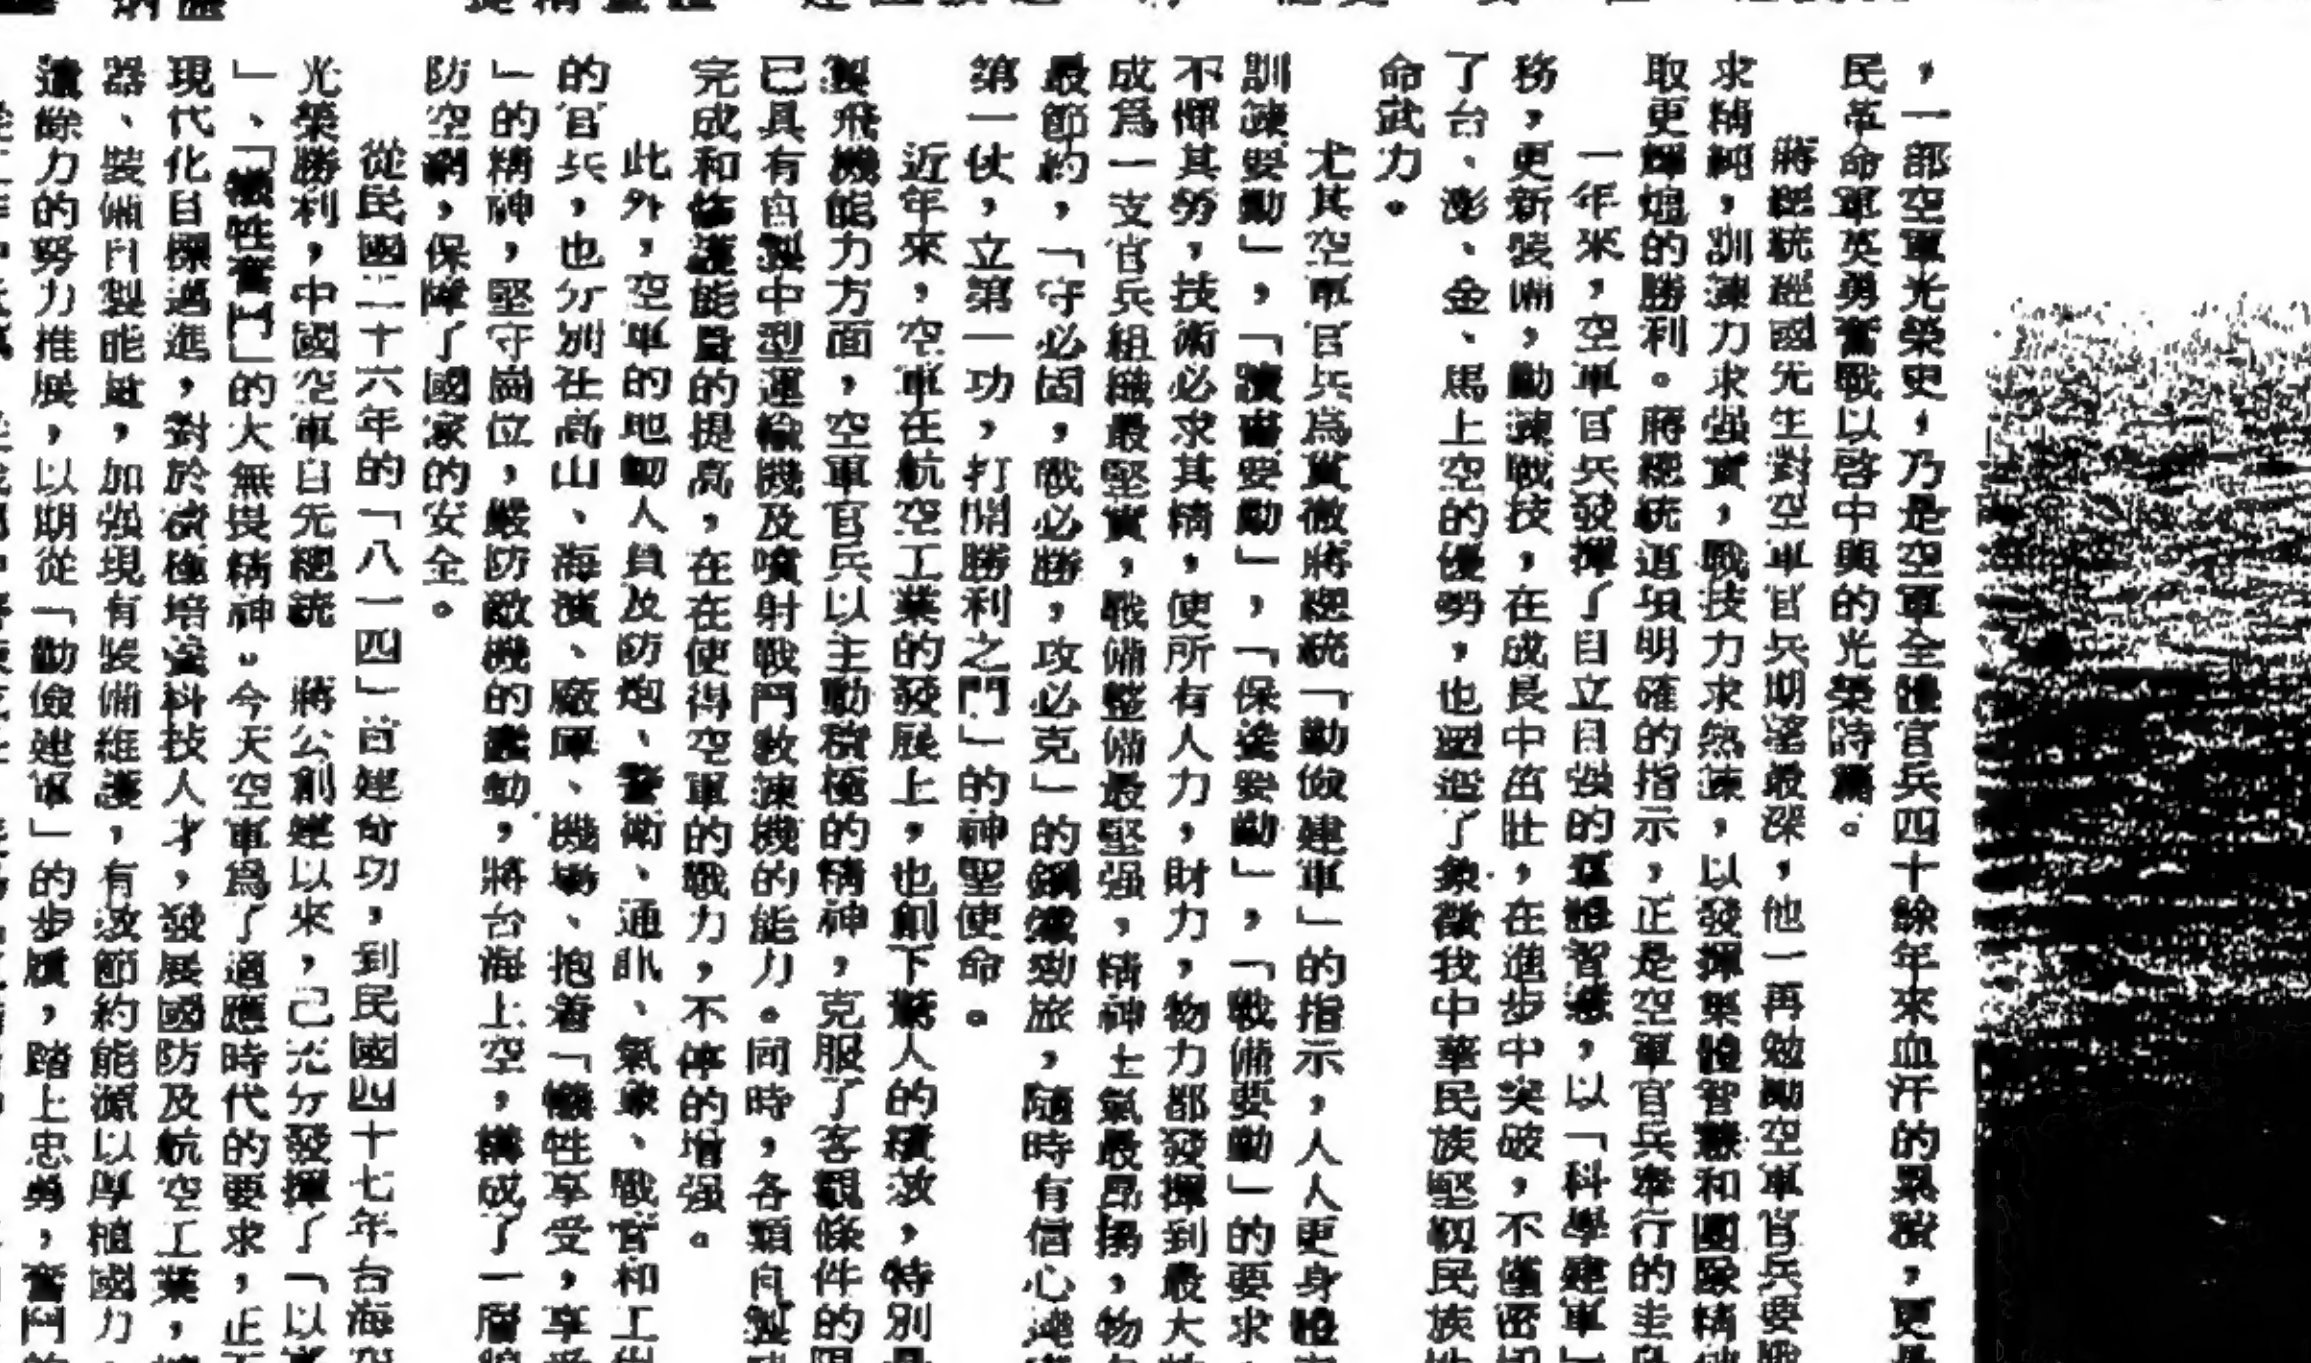 ，一部空軍光榮史，乃是空軍全體官兵四十餘年來血汗的累積，更是
民革命軍英勇奮戰以啓中興的光榮詩篇。
蔣總統經國先生對空軍官兵期望最深，他一再勉勵空軍官兵要戰
求精純，訓練力求強實，戰技力求熟練，以發揮集體智慧和團隊精神
取更輝煌的勝利。蔣總統這項明確的指示，正是空軍官兵奉行的圭臬
一年來，空軍官兵發揮了自立自強的智慧，以「科學建軍」
務，更新裝備，勤練戰技，在成長中茁壯，在進步中突破，不僅密切
了台、澎、金、馬上空的優勢，也塑造了象徵我中華民族堅韌民族性
命武力。
尤其空軍官兵爲貫徹蔣總統「勤儉建軍」的指示，人人更身體
訓練要勤」，「讀書要勤」，「保養要勤」，「戰備要勤」的要求
不憚其勞，技術必求其精，使所有人力，財力，物力都發揮到最大
成爲一支官兵組織最堅實，戰備整備最堅强，精神士氣最昂揚，物
最節約，「守必固，戰必勝，攻必克」的鋼鐵勁旅，隨時有信心
第一仗，立第一功，打開勝利之門」的神聖使命。
近年來，空軍在航空工業的發展上，也創下驚人的績效，特別是
製飛機能力方面，空軍官兵以主動積極的精神，克服了客觀條件的限
已具有自製中型運輸機及噴射戰鬥教練機的能力。同時，各類自製
完成和修護能量的提高，在在使得空軍的戰力，不停的增强。
此外，空軍的地勤人員及防炮、警衛、通訊、氣象、戰管和工
的官兵，也分別在高山、海濱、廠庫、機場、抱着「犧牲享受，享受
」的精神，堅守崗位，嚴防敵機的蠢動，將台海上空，構成了一層
防空網，保障了國家的安全。
從民國二十六年的「八一四」首建奇功，到民國四十七年台海空
光榮勝利，中國空軍自先總統　蔣公創建以來，已充分發揮了「以
」、「犧牲奮鬥」的大無畏精神。今天空軍爲了適應時代的要求，正
現代化目標邁進，對於積極培養科技人才，發展國防及航空工業，
器、裝備自製能量，加强現有裝備維護，有效節約能源以厚植國力
遺餘力的努力推展，以期從「勤儉建軍」的步履，踏上忠勇，奮鬥的